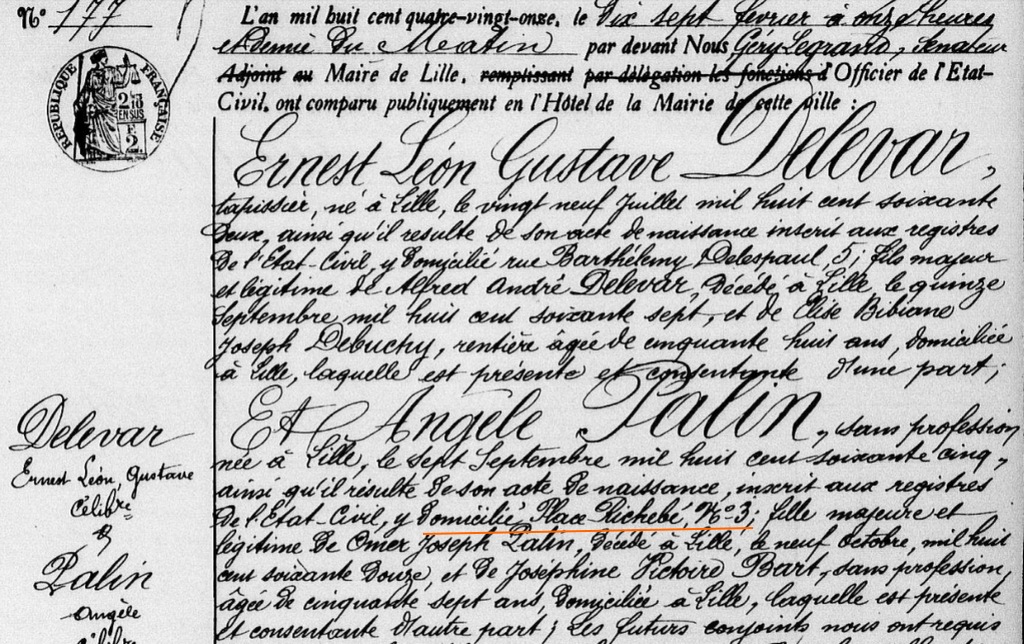 N° 177
L'an mil huit cent quatre-vingt-onze, le Dix sept février à onze heures
et demie du Matin par devant Nous Géry Legrand, Senateur
Adjoint au Maire de Lille, remplissant par délégation les fonctions d'Officier de l'Etat-
Civil, ont comparu publiquement en l'Hôtel de la Mairie de cette ville :
RÉPUBLIQUE FRANÇAISE
2/10 EN SUS
Ernest Léon Gustave Delevar,
tapissier, né à Lille, le vingt neuf Juillet mil huit cent soixante
Deux, ainsi qu'il résulte de son acte de naissance inscrit aux registres
De l'Etat-Civil, y domicilié rue Barthélemy Delespaul, 5; fils majeur
et légitime de Alfred André Delevar, Décédé à Lille le quinze
Septembre mil huit cent soixante sept, et de Elise Bibiane
Joseph Debuchy, rentière âgée de cinquante huit ans, domiciliée
à Lille, laquelle est présente et consentante d'une part;
Et Angèle Palin, sans profession
née à Lille, le sept Septembre mil huit cent soixante cinq,
ainsi qu'il résulte de son acte de naissance, inscrit aux registres
De l'Etat-Civil, y domicilié Place Richebé, N° 3; fille majeure et
légitime de Omer Joseph Palin, Décédé à Lille, le neuf octobre, mil huit
cent soixante Douze, et de Joséphine Victoire Bart, sans profession,
âgée de cinquante sept ans, Domiciliée à Lille, laquelle est présente
et consentante d'autre part; Les futurs conjoints nous ont requis
Delevar
Ernest Léon, Gustave
Célibre
&
Palin
Angèle